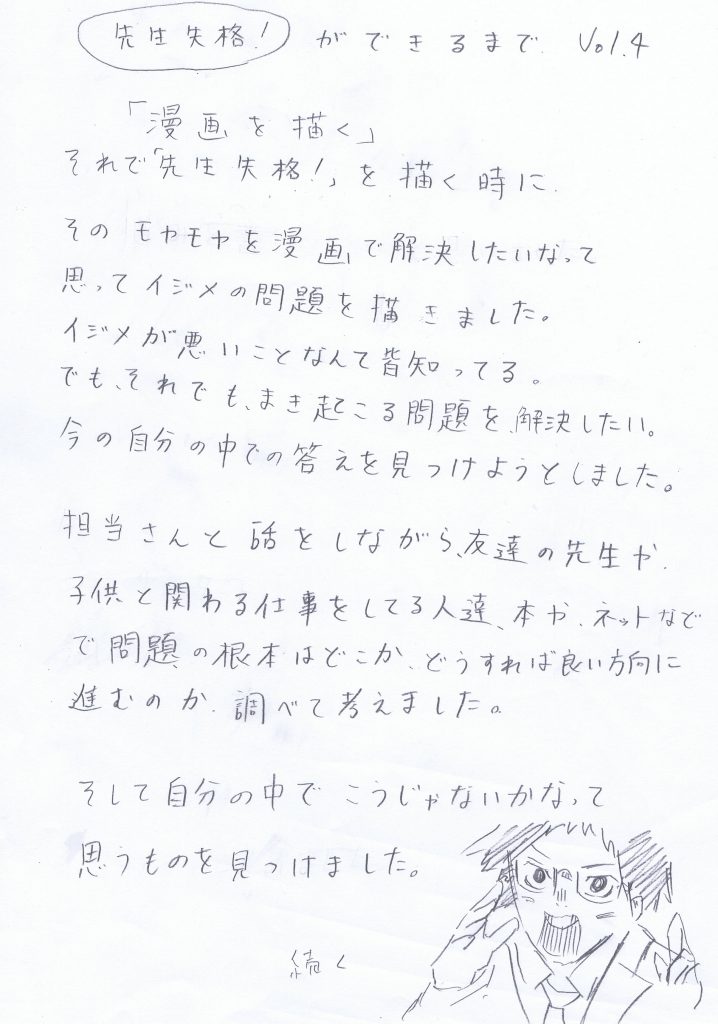 先生失格! ができるまで Vol.4
「漫画を描く」
それで「先生失格!」を描く時に
そのモヤモヤを漫画で解決したいなって
思ってイジメの問題を描きました。
イジメが悪いことなんて皆知ってる。
でも、それでも、まき起こる問題を、解決したい。
今の自分の中での答えを見つけようとしました。
担当さんと話をしながら、友達の先生や、
子供と関わる仕事をしてる人達、本や、ネットなど
で問題の根本はどこか、どうすれば良い方向に
進むのか、調べて考えました。
そして自分の中でこうじゃないかなって
思うものを見つけました。
続く